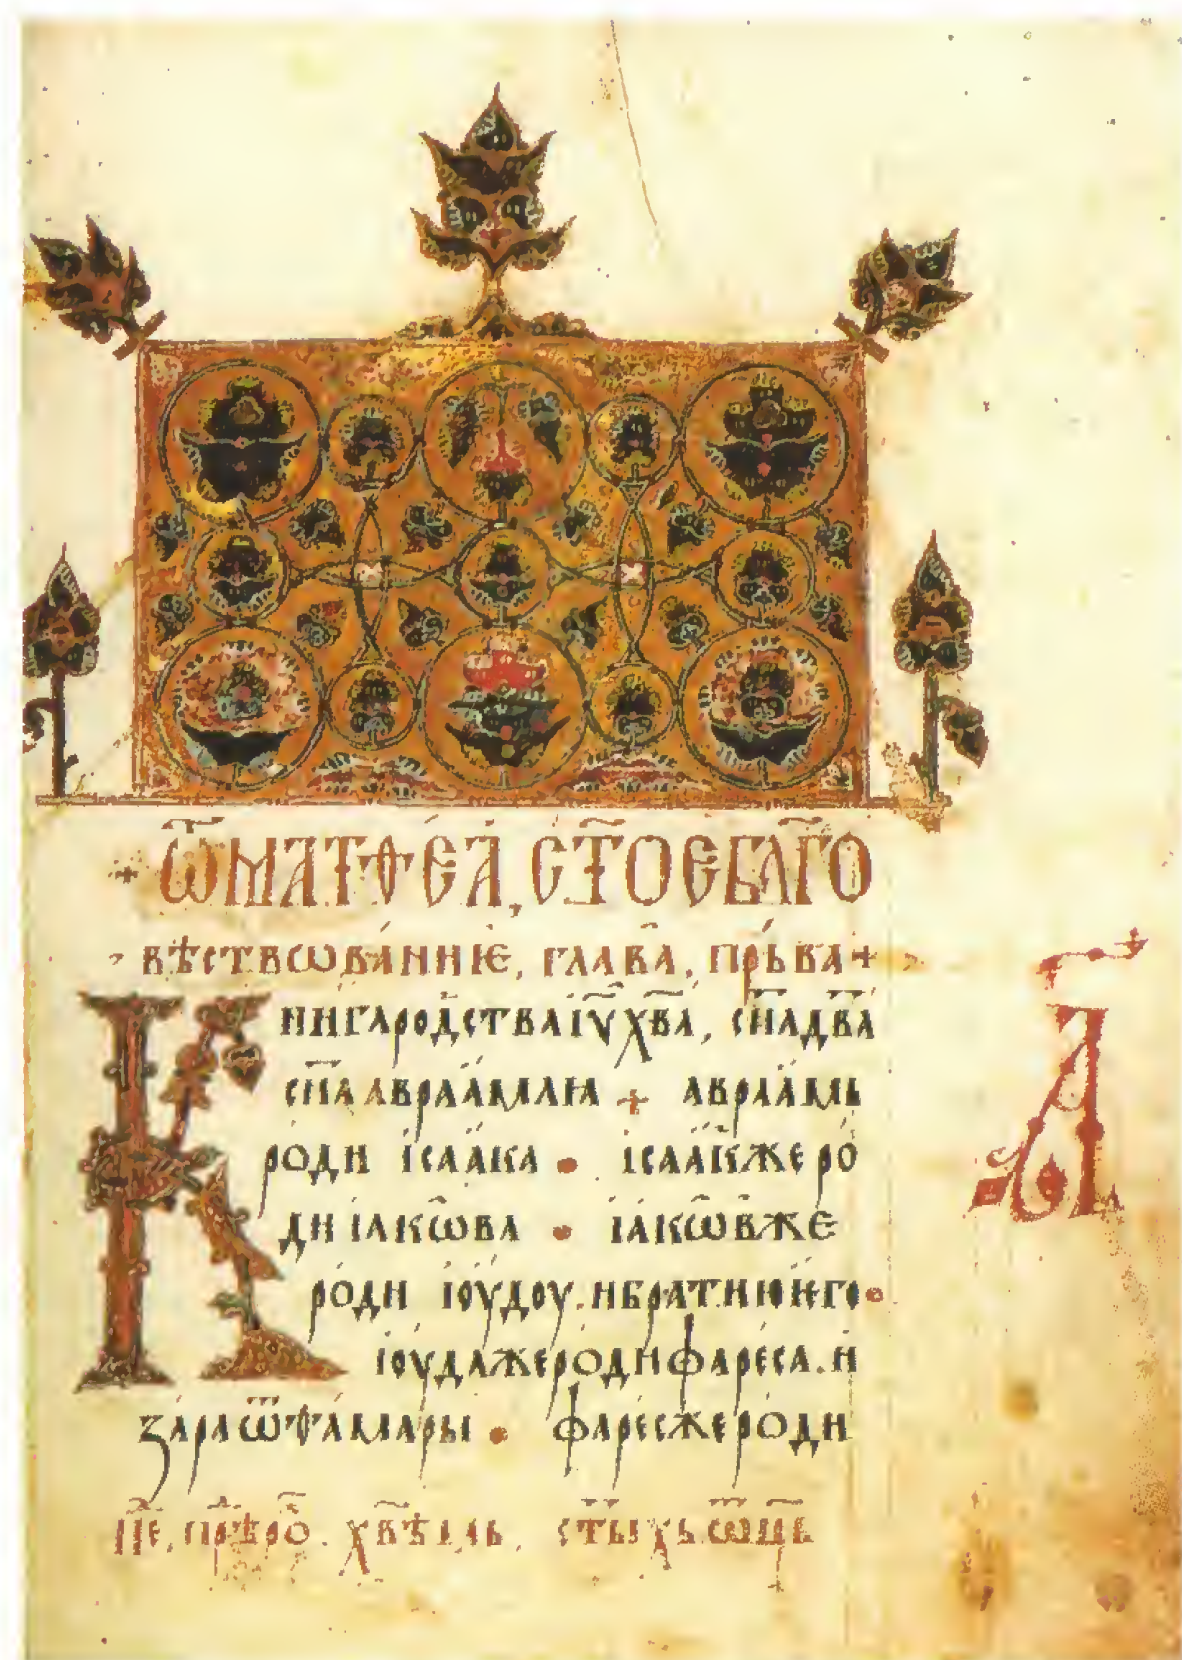 + Ѿ МАТѲЕА, СТ҃ОЕ БЛ҃ГО
ВѢСТВѠВА́НИЕ, ГЛАВА̀, ПРЬ́ВА +
КНИГА РОДСТВА ІУ ХВА, СН҃А ДВ҃А
СН҃А АВРАА́МЛꙖ + АВРАА́МЬ
РО́ДИ ІСАА́КА • ІСАА́КЖЕ РО́
ДИ ІА́КѠВА • ІА́КѠВЖЕ
РО́ДИ ІОУДОУ. И БРАТИЮ ѤГО •
ІОУДАЖЕ РО́ДИ ФАРЕ́СА. И
ЗА́РА Ѿ ѲА́МАРЫ • ФАРЕ́СЖЕ РО́ДИ
А